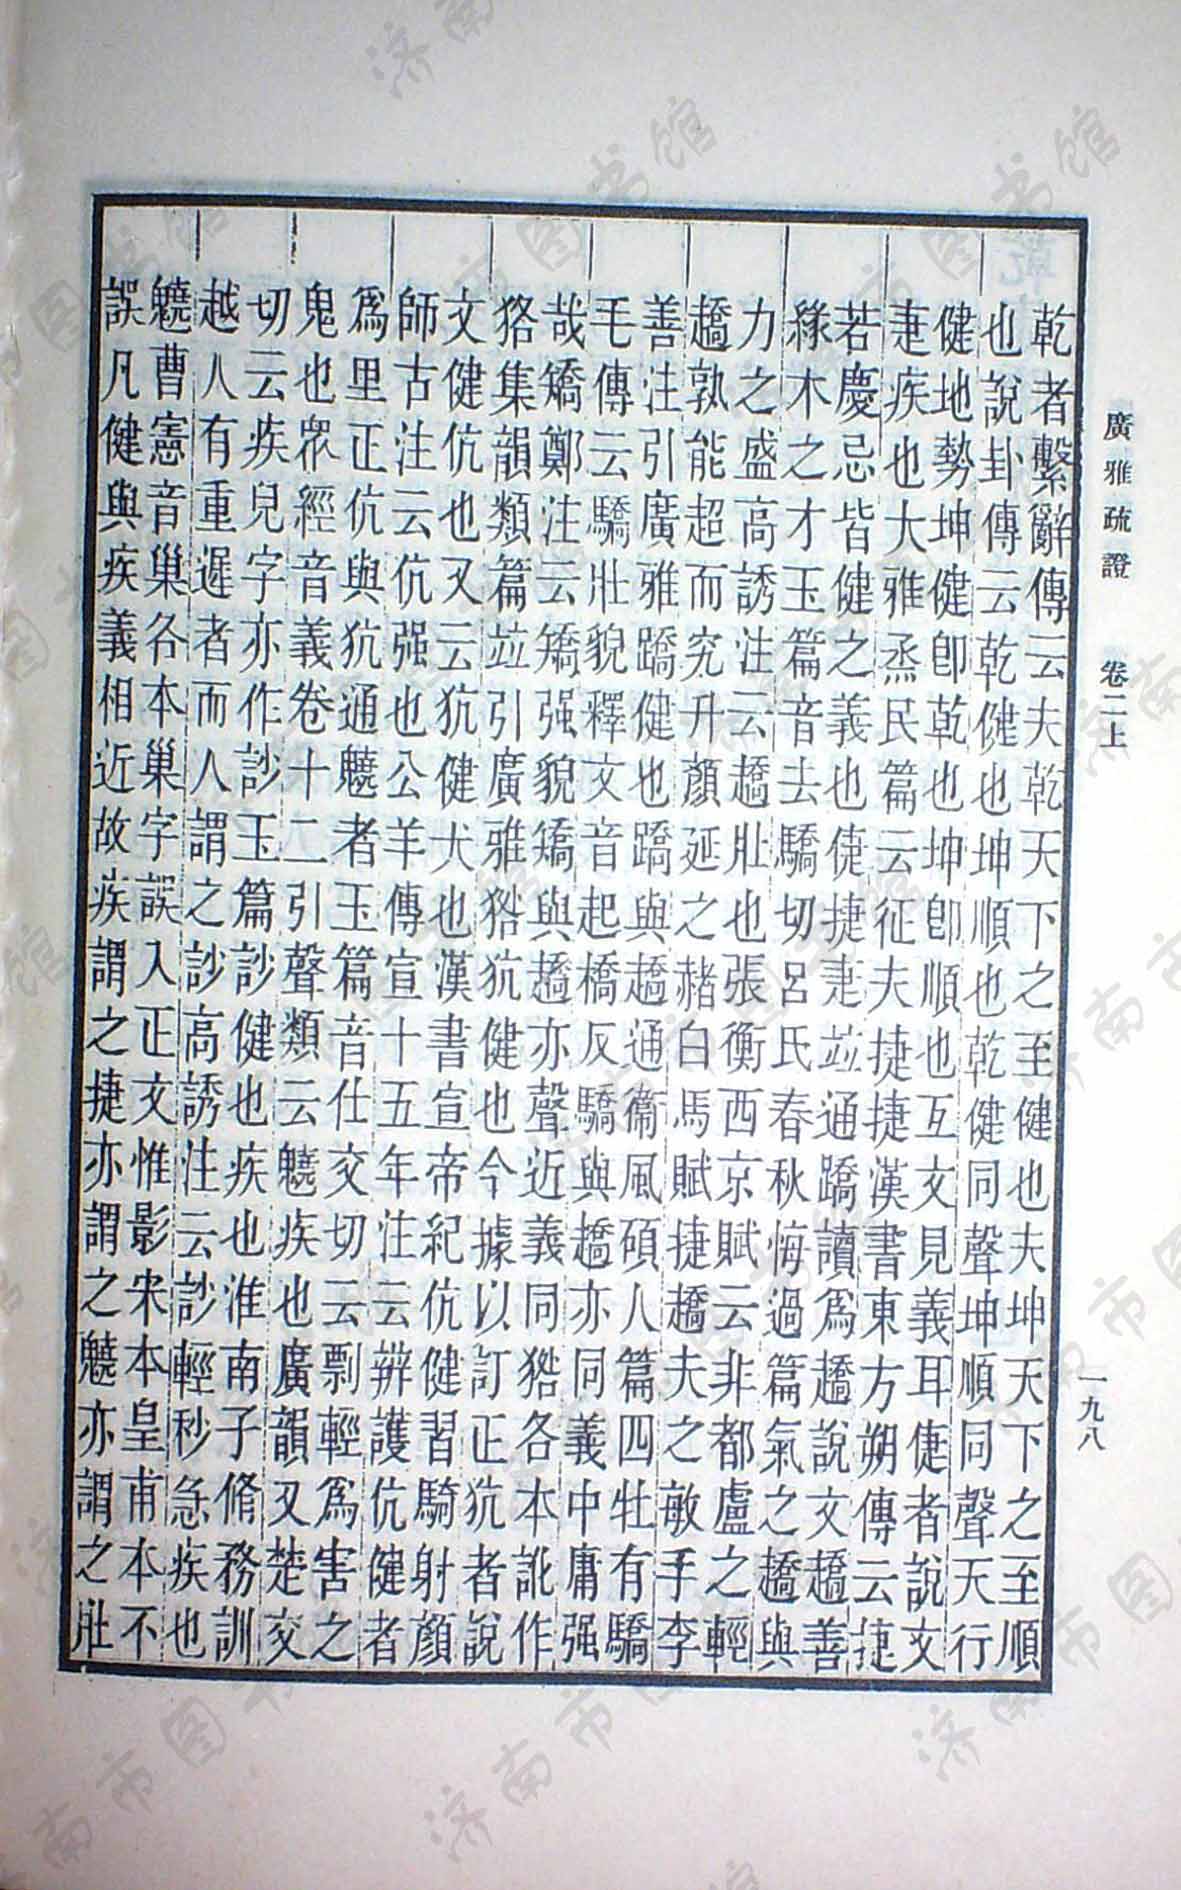 廣雅疏證　卷二上
一九八
乾者繫辭傳云夫乾天下之至健也夫坤天下之至順
也說卦傳云乾健也坤順也乾健同聲坤順同聲天行
健地勢坤健卽乾也坤卽順也互文見義耳倢者說文
疌疾也大雅烝民篇云征夫捷捷漢書東方朔傳云捷
若慶忌皆健之義也倢捷疌竝通蹻讀爲趫說文趫善
緣木之才玉篇音去驕切呂氏春秋悔過篇氣之趫與
力之盛高誘注云趫壯也張衡西京賦云非都盧之輕
趫孰能超而究升顏延之赭白馬賦捷趫夫之敏手李
善注引廣雅蹻健也蹻與趫通衞風碩人篇四牡有驕
毛傳云驕壯貌釋文音起橋反驕與趫亦同義中庸强
哉矯鄭注云矯强貌矯與趫亦聲近義同各本訛作
狢集韻類篇竝引廣雅犺健也今據以訂正犺者說
文健伉也又云犺健犬也漢書宣帝紀伉健習騎射顏
師古注云伉强也公羊傳宣十五年注云辨護伉健者
爲里正伉與犺通䰫者玉篇音仕交切云剽輕爲害之
鬼也眾經音義卷十二引聲類云䰫疾也廣韻又楚交
切云疾皃字亦作訬玉篇訬健也疾也淮南子脩務訓
越人有重遲者而人謂之訬高誘注云訬輕秒急疾也
䰫曹憲音巢各本巢字誤入正文惟影宋本皇甫本不
誤凡健與疾義相近故疾謂之捷亦謂之䰫亦謂之壯